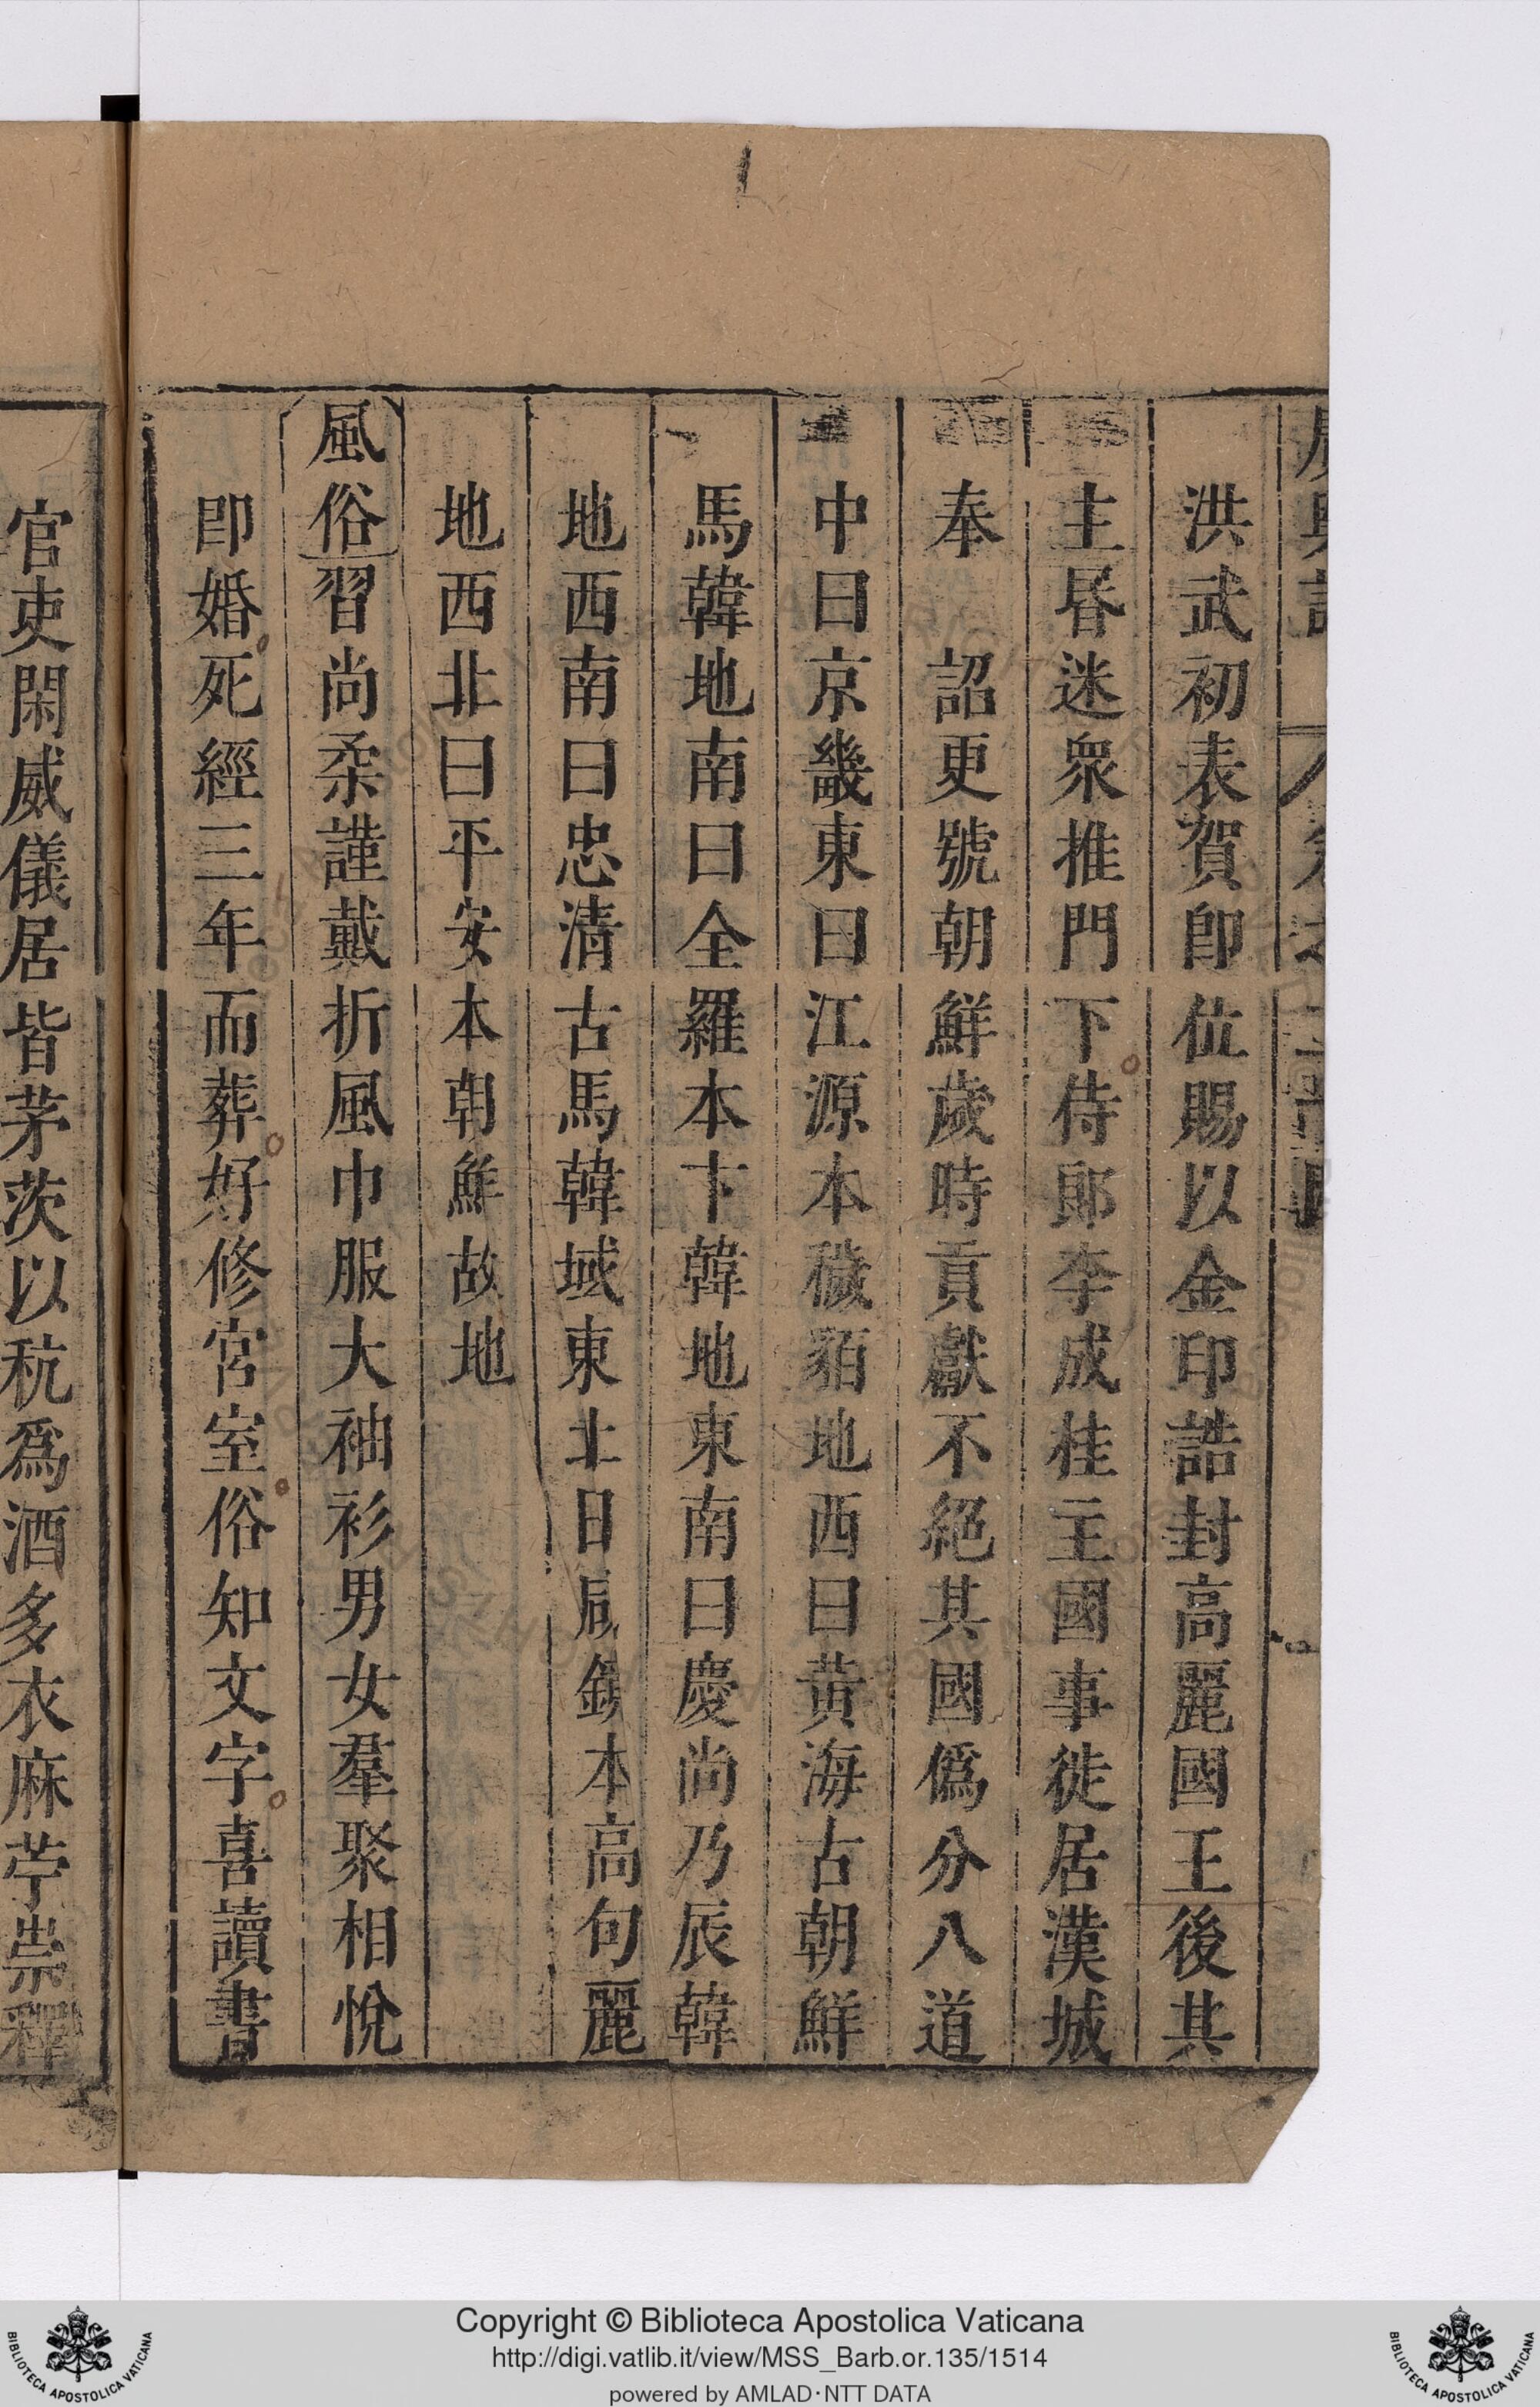 洪武初表賀卽位賜以金印誥封高麗國王後其
主昏迷衆推門下侍郎李成桂主國事徙居漢城
奉 詔更號朝鮮歲時貢獻不絕其國僞分八道
中曰京畿東曰江源本穢貊地西曰黃海古朝鮮
馬韓地南曰全羅本卞韓地東南曰慶尚乃辰韓
地西南曰忠清古馬韓域東北曰咸鏡本高句麗
地西北曰平安本朝鮮故地
風俗習尚柔謹戴折風巾服大袖衫男女羣聚相悅
卽婚死經三年而葬好修宮室俗知文字喜讀書
官吏閑威儀居皆茅茨以秔爲酒多衣麻苧崇釋
Copyright © Biblioteca Apostolica Vaticana
http://digi.vatlib.it/view/MSS_Barb.or.135/1514
powered by AMLAD·NTT DATA
BIBLIOTECA APOSTOLICA VATICANA
BIBLIOTECA APOSTOLICA VATICANA